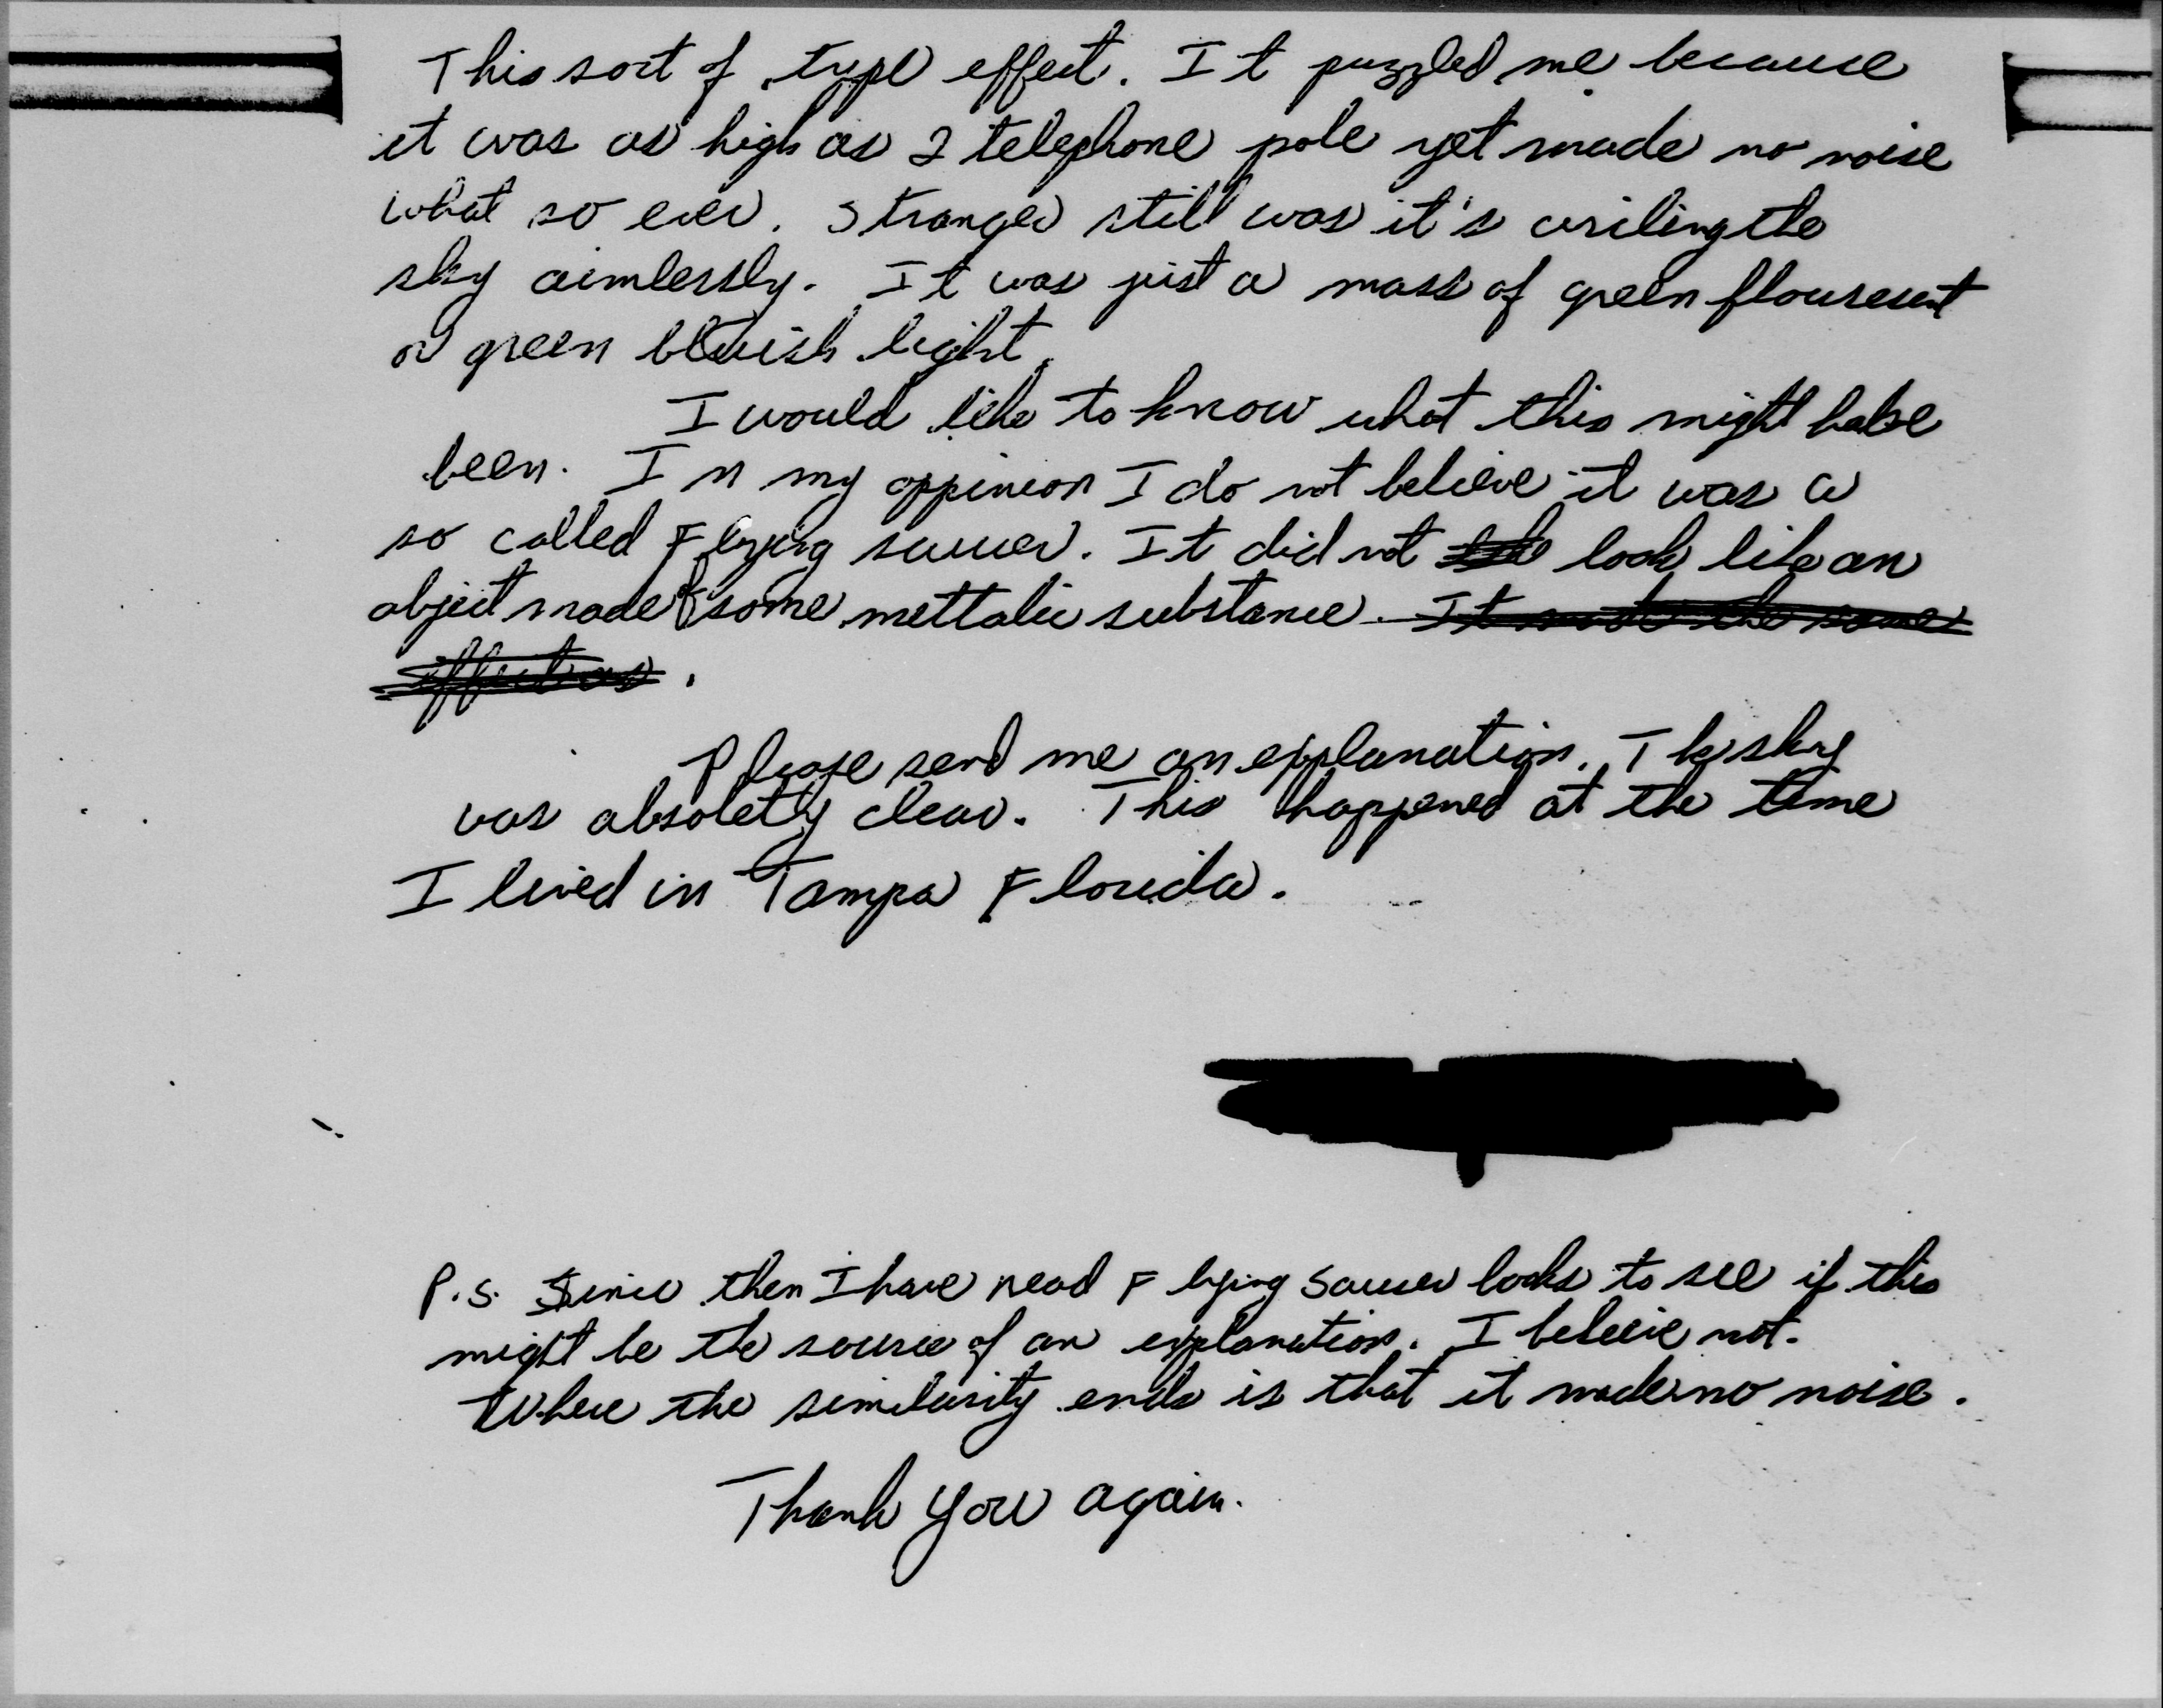 This sort of type effect. It puzzled me because
it was as high as 2 telephone pole yet made no noise
what so ever. Stranger still was it's criling the
sky aimlessly. It was just a mass of green flouresent
or green bluish light.
I would like to know what this might have
been. In my oppinion I do not believe it was a
so called Flying saucer. It did not look like an
object made of some mettalic substance. It made the same
effect as.
Please send me an explanation. The sky
was absoletly clear. This happened at the time
I lived in Tampa Florida.
P.S. Since then I have read Flying Saucer books to see if this
might be the source of an explanation. I believe not.
Where the similarity ends is that it made no noise.
Thank you again.